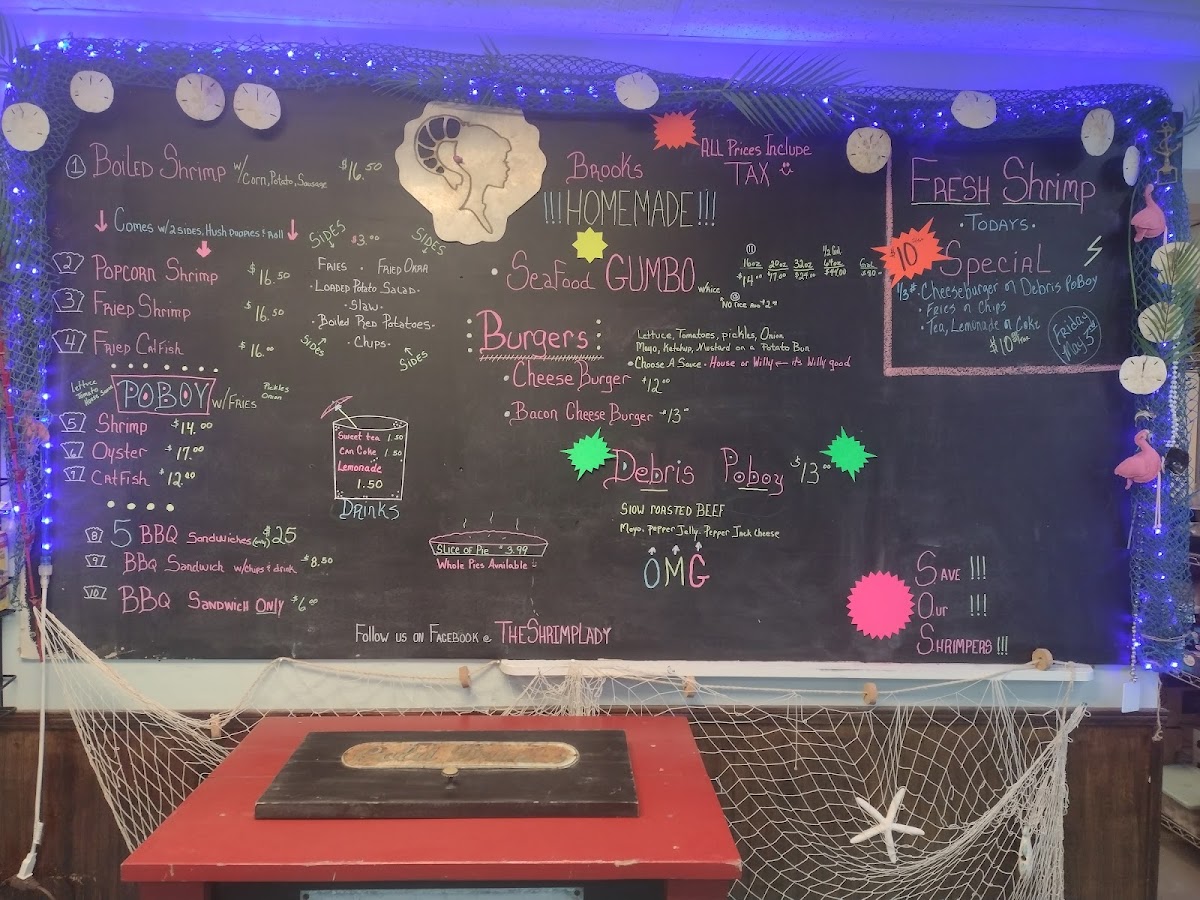 1 Boiled Shrimp w/ Corn, Potato, Sausage $16.50
Comes w/ 2 sides, Hush Puppies & Roll
2 Popcorn Shrimp $16.50
3 Fried Shrimp $16.50
4 Fried Catfish $16.00
Lettuce
Tomato
House Sauce
POBOY w/ FRIES
Pickles
Onion
5 Shrimp $14.00
6 Oyster $17.00
7 Catfish $12.00
8 5 BBQ Sandwiches (only) $25
9 BBQ Sandwich w/chips & drink $8.50
10 BBQ Sandwich ONLY $6.00
SIDES $3.00 SIDES
Fries • Fried Okra
• Loaded Potato Salad •
• Slaw •
• Boiled Red Potatoes •
• Chips •
SIDES SIDES
Sweet tea 1.50
Can Coke 1.50
Lemonade
1.50
DRINKS
Slice of Pie $3.99
Whole Pies Available
Follow us on Facebook @ TheShrimpLady
Brooks
!!!HOMEMADE!!!
ALL Prices Include
TAX
• Seafood GUMBO w/rice
11
16oz 20oz 32oz 1/2 Gal 64oz Gal
$14.00 $17.00 $24.00 $44.00
*No Rice Add $2.00
Burgers
Lettuce, Tomatoes, pickles, Onion
Mayo, Ketchup, Mustard on a Potato Bun
• Choose A Sauce - House or Willy ← it's Willy good
• Cheese Burger $12.00
• Bacon Cheese Burger $13.00
Debris Poboy $13.00
Slow roasted BEEF
Mayo, Pepper Jelly, Pepper Jack Cheese
OMG
Fresh Shrimp
• Todays •
$10.00
Special
1/3# • Cheeseburger or Debris PoBoy
• Fries or Chips
• Tea, Lemonade or Coke
$10.00
Friday
May 5th
Save !!!
Our !!!
Shrimpers !!!